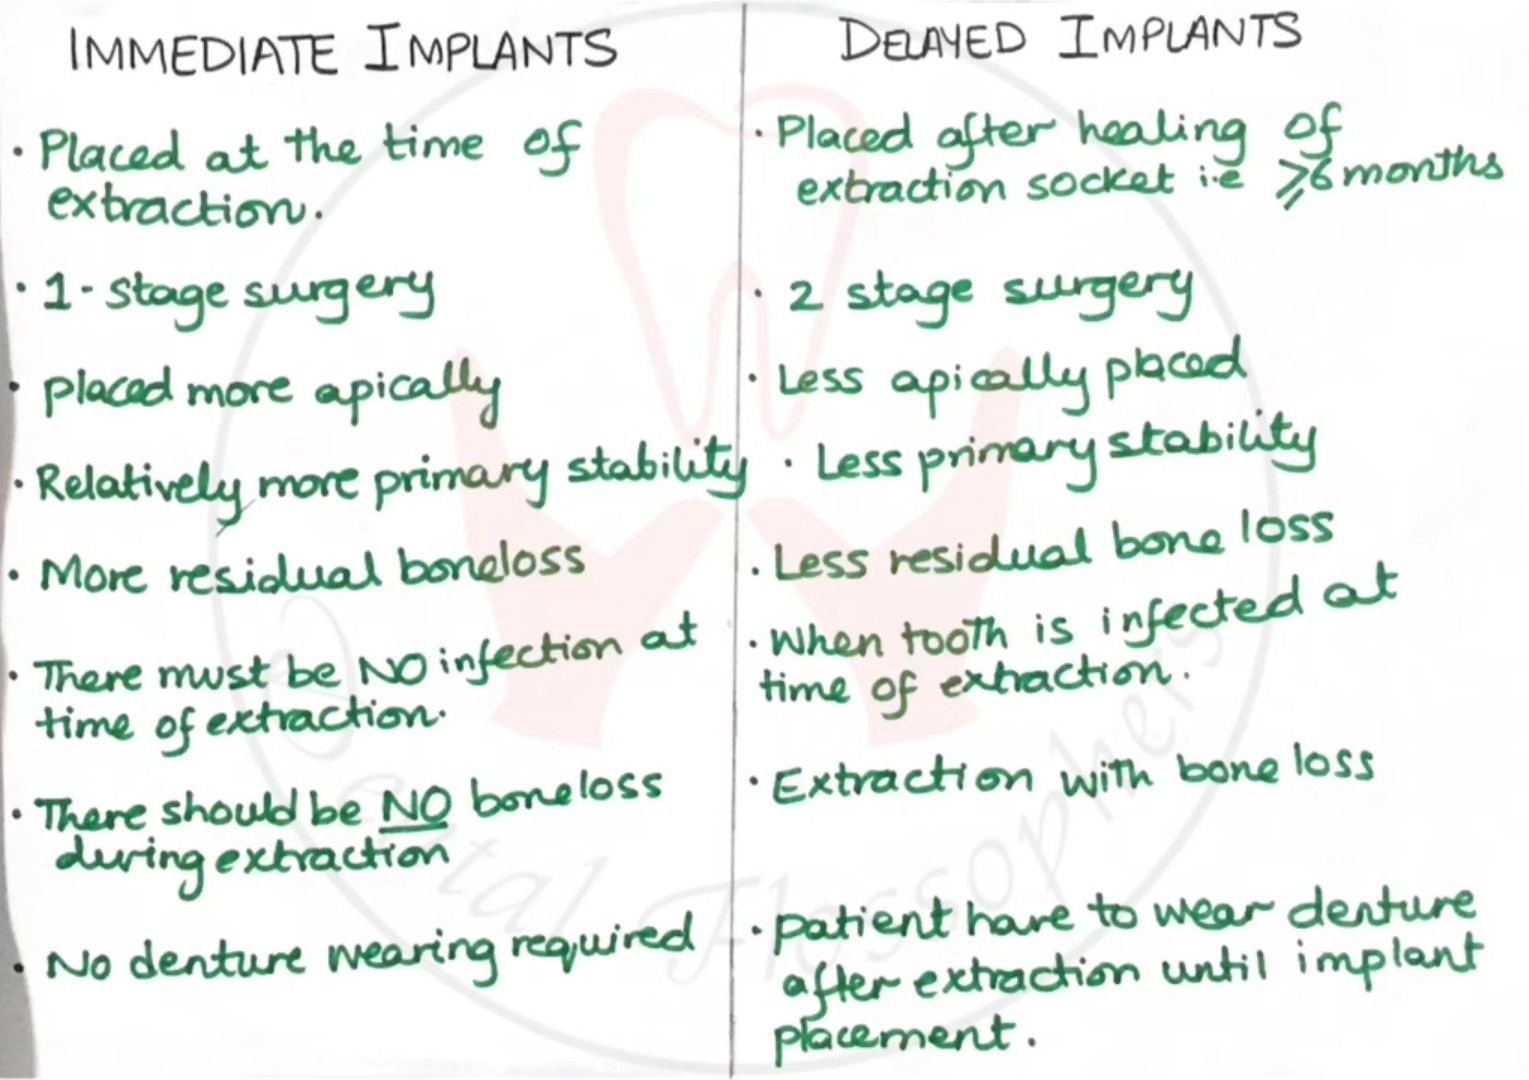 IMMEDIATE IMPLANTS
• Placed at the time of
extraction.
• 1-stage surgery
• placed more apically
• Relatively more primary stability
• More residual boneloss
• There must be NO infection at
time of extraction.
• There should be NO boneloss
during extraction
• No denture wearing required
DELAYED IMPLANTS
• Placed after healing of
extraction socket i.e ⩾6 months
• 2 stage surgery
• Less apically placed
• Less primary stability
• Less residual bone loss
• When tooth is infected at
time of extraction.
• Extraction with bone loss
• patient have to wear denture
after extraction until implant
placement.
Dental Flossophers